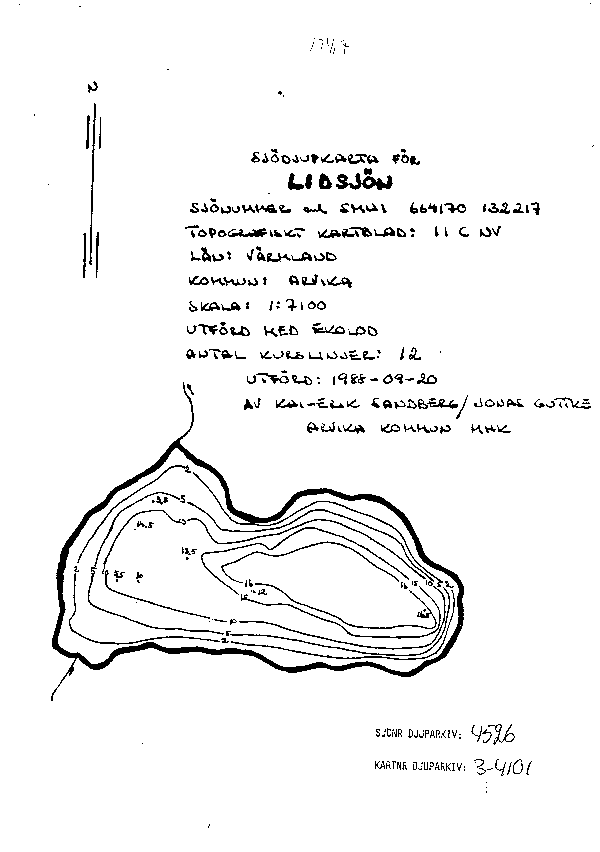 N
SJÖDJUPKARTA FÖR
LIDSJÖN
SJÖNUMMER enl SMHI 664170 132217
TOPOGRAFISKT KARTBLAD: 11 C NV
LÄN: VÄRMLAND
KOMMUN: ARVIKA
SKALA: 1:7100
UTFÖRD MED EKOLOD
ANTAL KURSLINJER: 12
UTFÖRD: 1988-09-20
AV KAI-ERIK SANDBERG/JONAS
ARVIKA KOMMUN MHK
2
5
10
2 5 10 10
16
15 12
16 15 10 5 2
10
5
2
SJÖNR DJUPARKIV: 4526
KARTNR DJUPARKIV: 3-4101